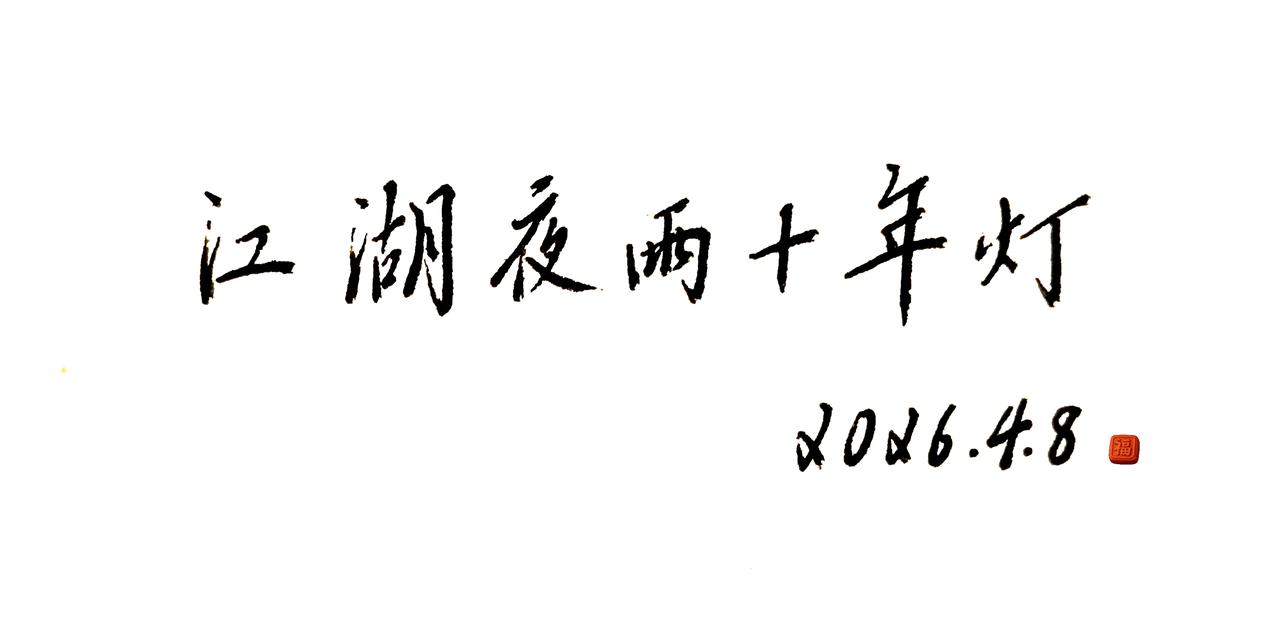 江湖夜雨十年灯
2026.4.8
福